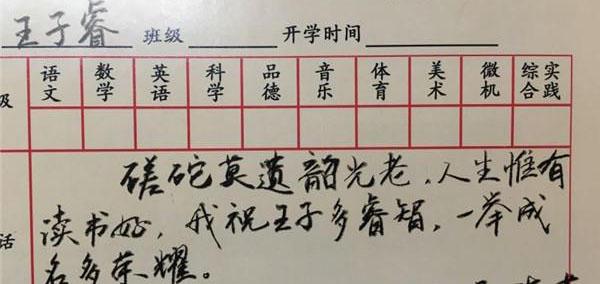 王子睿 班级 开学时间
级 语文 数学 英语 科学 品德 音乐 体育 美术 微机 综合实践
磋砣莫遗韶光老,人生惟有
话 读书好,我祝王子多睿智,一举成
名多荣耀。